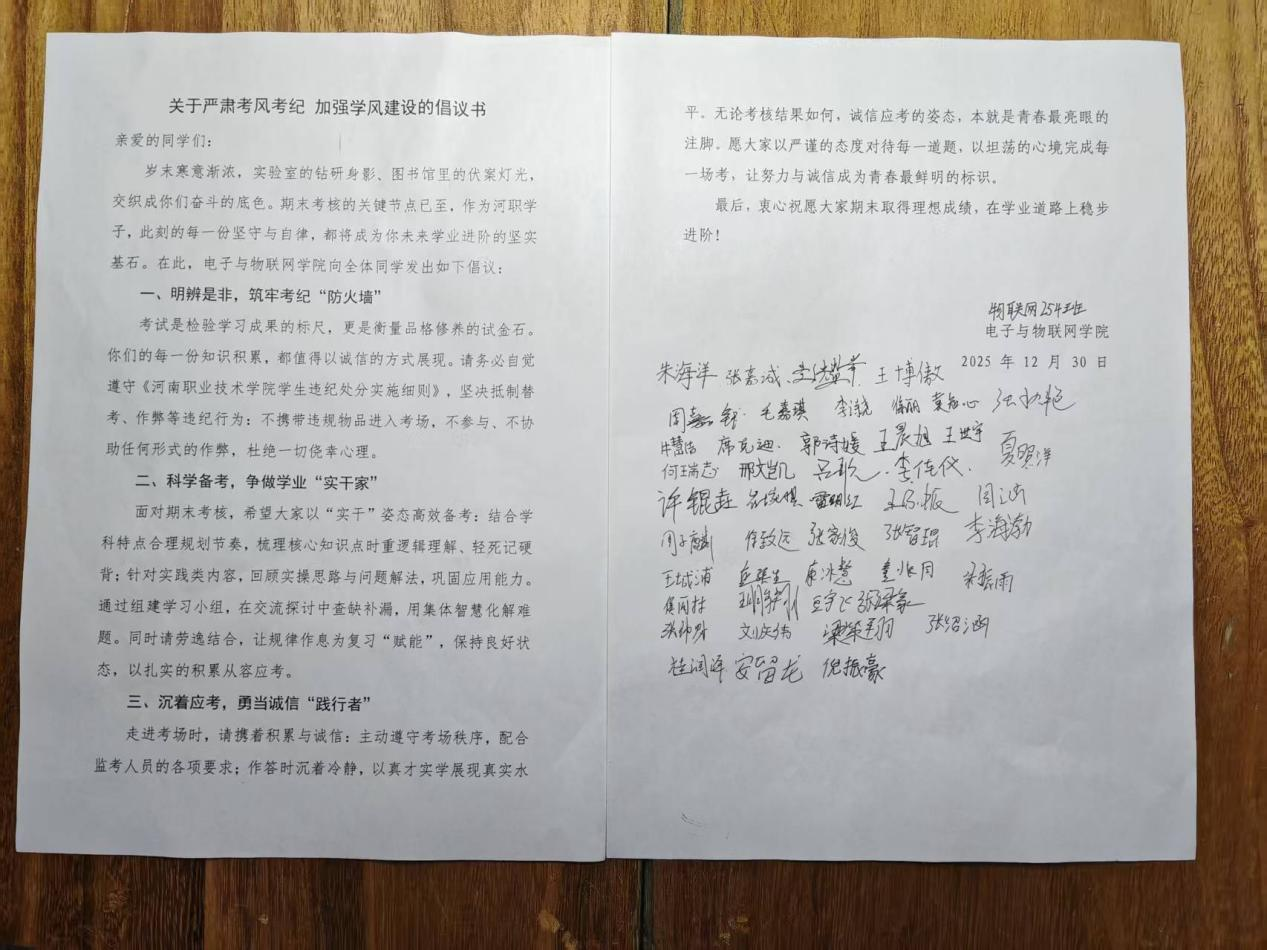 关于严肃考风考纪 加强学风建设的倡议书
亲爱的同学们：
岁末寒意渐浓，实验室的钻研身影、图书馆里的伏案灯光，
交织成你们奋斗的底色。期末考核的关键节点已至，作为河职学
子，此刻的每一份坚守与自律，都将成为你未来学业进阶的坚实
基石。在此，电子与物联网学院向全体同学发出如下倡议：
一、明辨是非，筑牢考纪“防火墙”
考试是检验学习成果的标尺，更是衡量品格修养的试金石。
你们的每一份知识积累，都值得以诚信的方式展现。请务必自觉
遵守《河南职业技术学院学生违纪处分实施细则》，坚决抵制替
考、作弊等违纪行为：不携带违规物品进入考场，不参与、不协
助任何形式的作弊，杜绝一切侥幸心理。
二、科学备考，争做学业“实干家”
面对期末考核，希望大家以“实干”姿态高效备考：结合学
科特点合理规划节奏，梳理核心知识点时重逻辑理解、轻死记硬
背；针对实践类内容，回顾实操思路与问题解法，巩固应用能力。
通过组建学习小组，在交流探讨中查缺补漏，用集体智慧化解难
题。同时请劳逸结合，让规律作息为复习“赋能”，保持良好状
态，以扎实的积累从容应考。
三、沉着应考，勇当诚信“践行者”
走进考场时，请携着积累与诚信：主动遵守考场秩序，配合
监考人员的各项要求；作答时沉着冷静，以真才实学展现真实水
平。无论考核结果如何，诚信应考的姿态，本就是青春最亮眼的
注脚。愿大家以严谨的态度对待每一道题，以坦荡的心境完成每
一场考，让努力与诚信成为青春最鲜明的标识。
最后，衷心祝愿大家期末取得理想成绩，在学业道路上稳步
进阶！
物联网254班
电子与物联网学院
2025 年 12 月 30 日
朱海洋 张嘉诚 王博傲
毛嘉琪
席克迪 郭诗媛 王晨旭 王世宇
何瑞志 夏贺洋
许锟垚 周涵
任致远 张家俊 张智琨 李海渤
王城浦
刘庆伟 张绍涵
桂润泽 安留龙 倪振豪